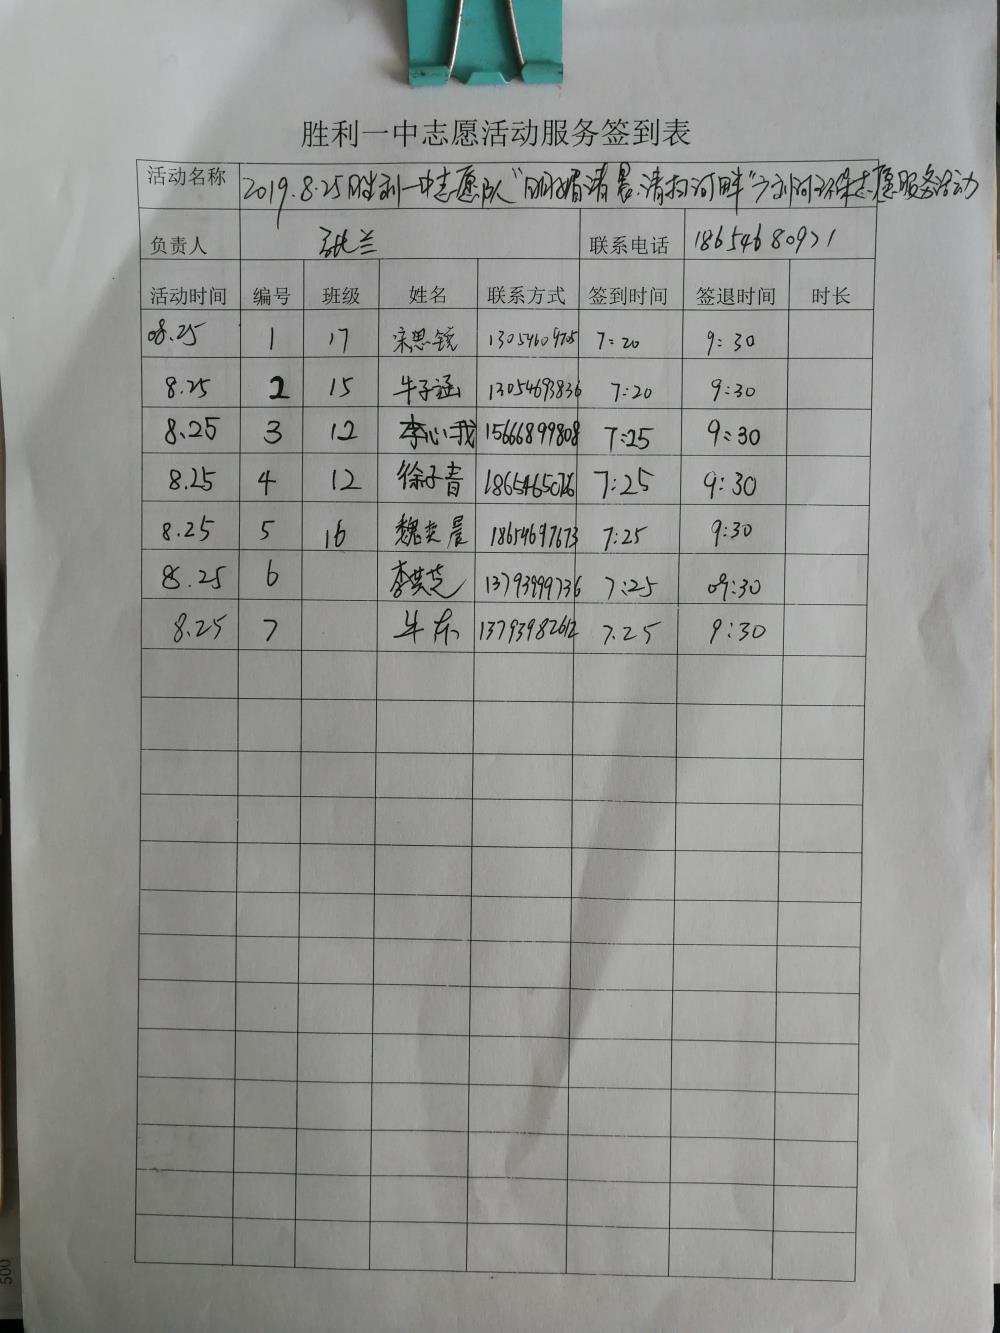 胜利一中志愿活动服务签到表
活动名称 2019.8.25胜利一中志愿队“明媚清晨,清扫河畔”广利河环保志愿服务活动
负责人 张兰 联系电话 18654680971
活动时间 编号 班级 姓名 联系方式 签到时间 签退时间 时长
08.25 1 17 宋思锐 7:20 9:30
8.25 2 15 牛子涵 13054693836 7:20 9:30
8.25 3 12 李心我 15666899808 7:25 9:30
8.25 4 12 徐子青 7:25 9:30
8.25 5 16 魏奕晨 18654697673 7:25 9:30
8.25 6 李芸芝 13793999736 7:25 09:30
8.25 7 牛东 13793982612 7.25 9:30
500